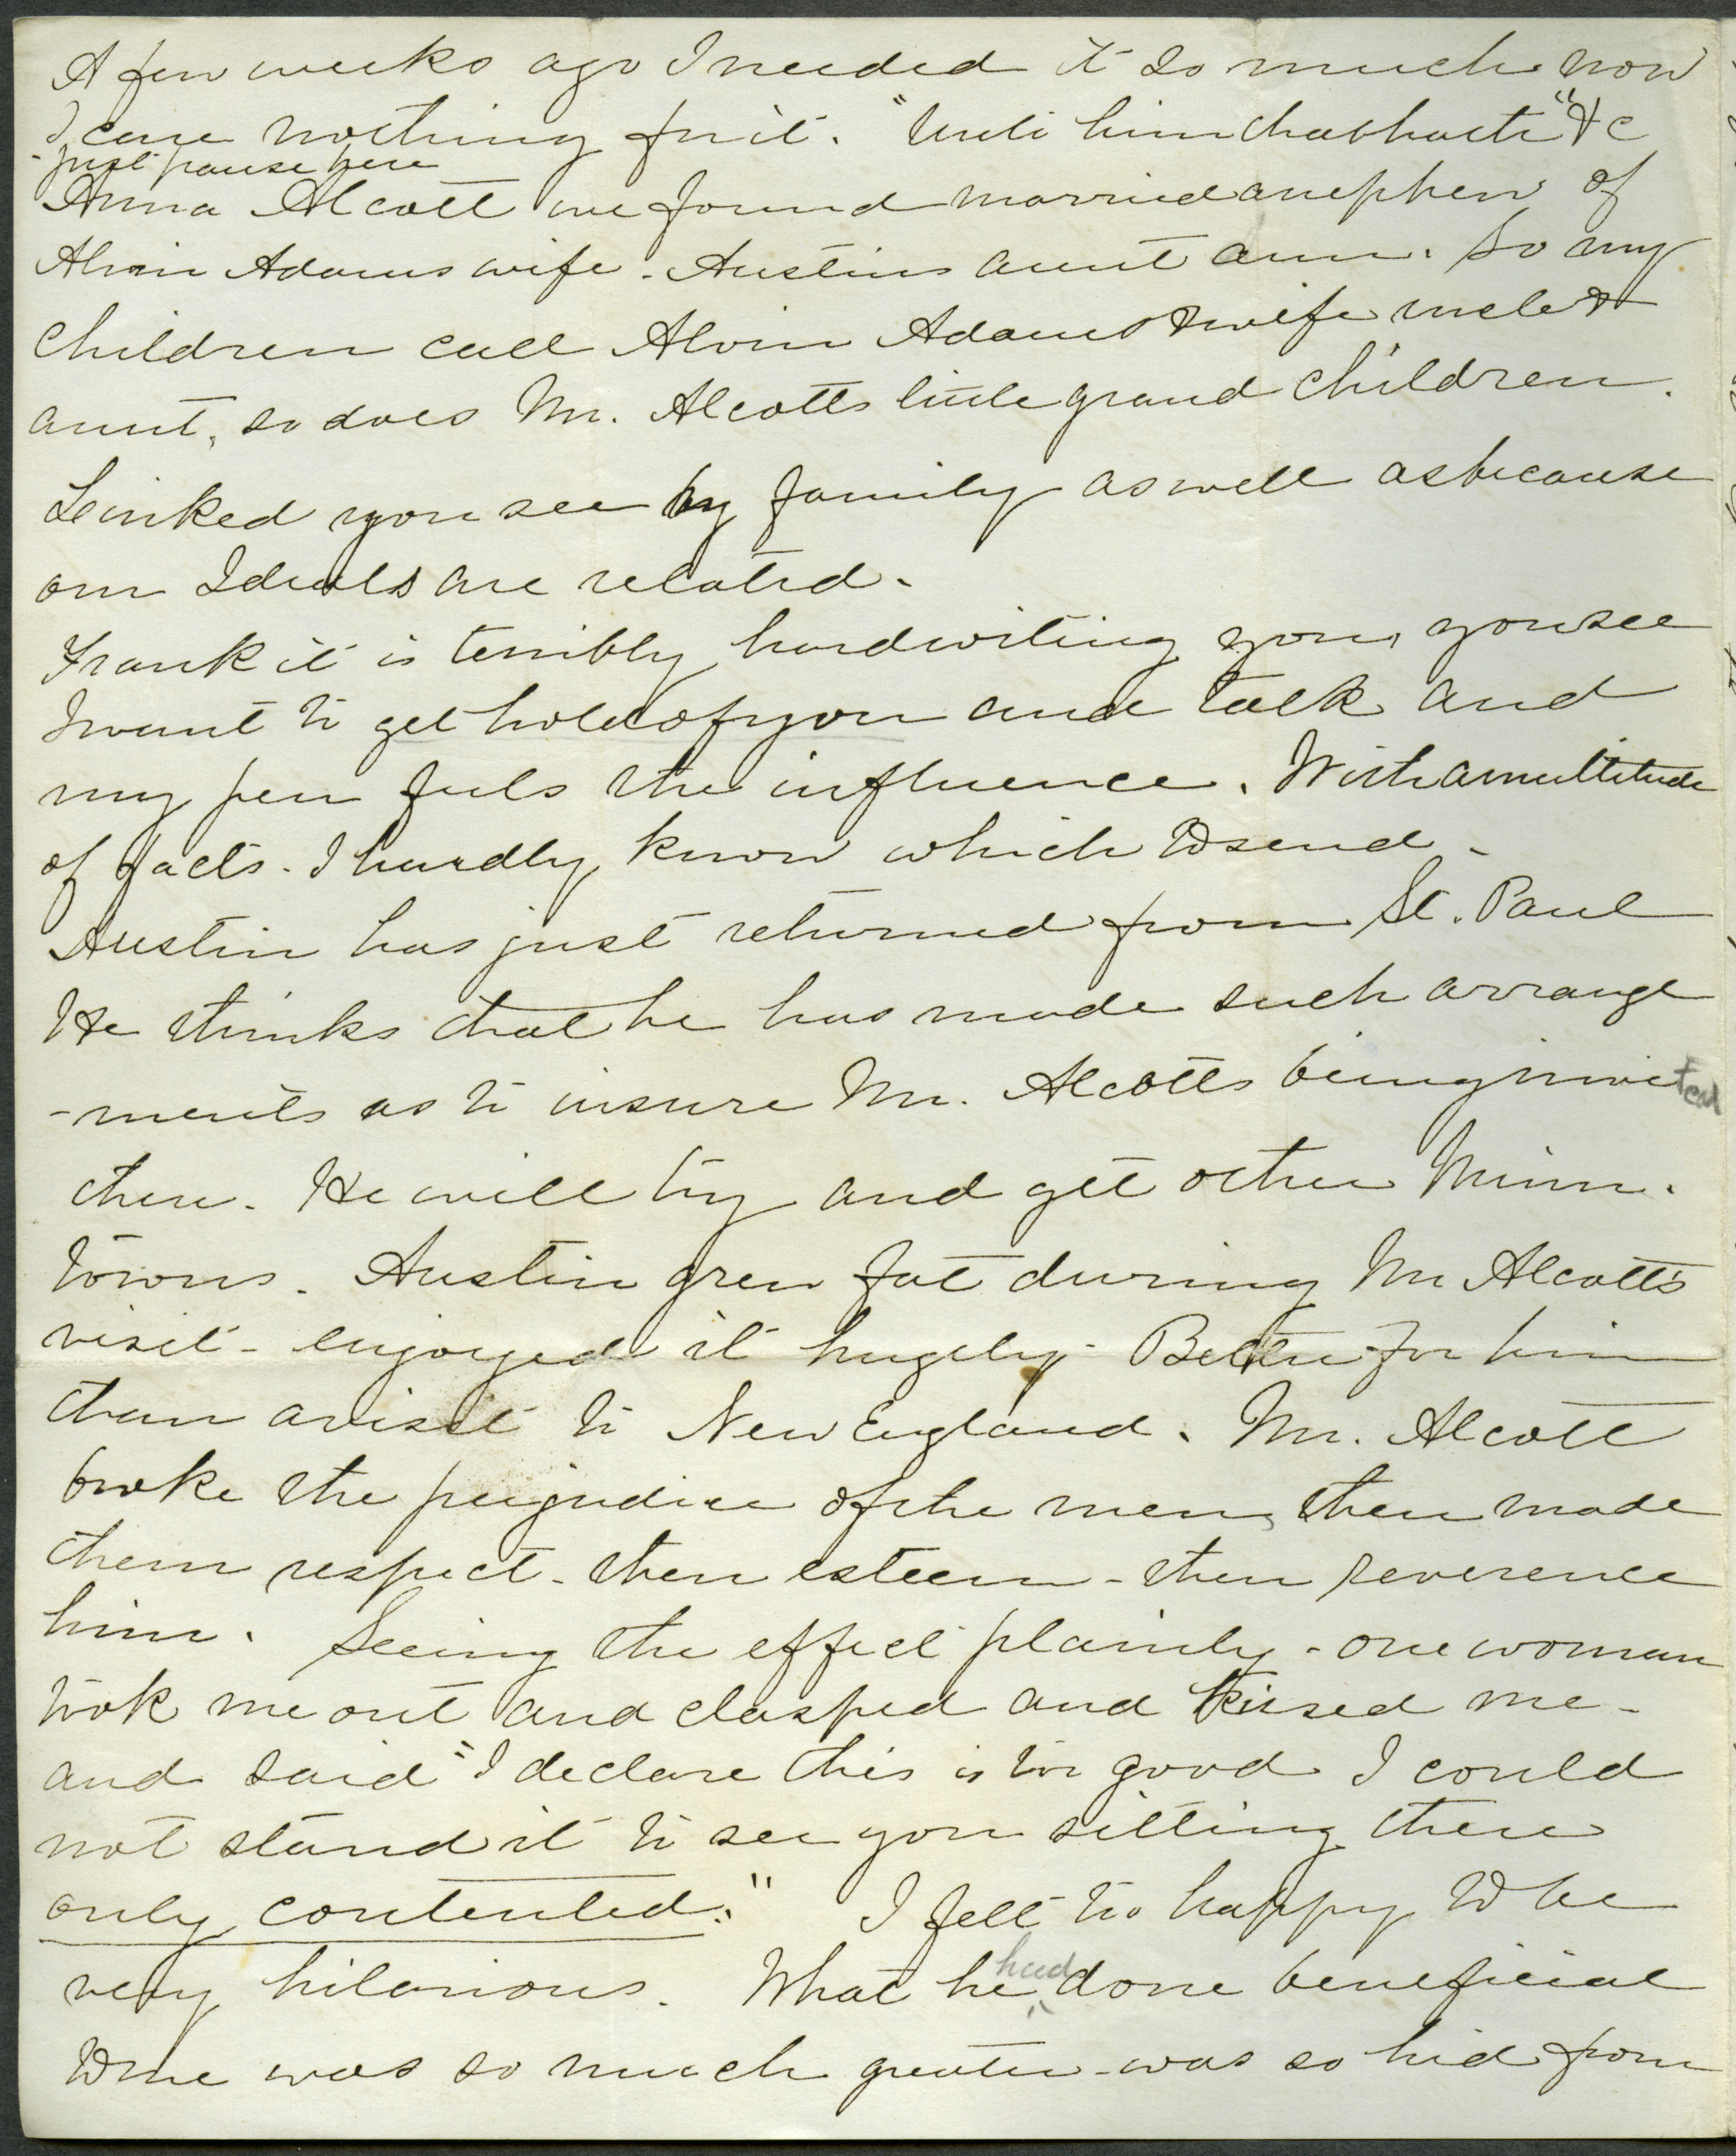 A few weeks ago I needed it so much now
I care nothing for it. "Unto him that hath" &c
- just pause here
Anna Alcott we found married a nephew of
Alvin Adams wife - Austins aunt ann. So my
children call Alvin Adams & wife uncle &
aunt, so does Mr. Alcotts little grand children.
Linked you see by family as well as because
our Ideals are related.
Frank it is terribly hard writing you, you see
I want to get hold of you and talk and
my pen feels the influence. With a multitude
of facts. I hardly know which to send -
Austin has just returned from St. Paul
He thinks that he has made such arrange
-ments as to insure Mr. Alcotts being invited
there. He will try and get other Minn.
towns. Austin grew fat during Mr Alcott's
visit - enjoyed it hugely - Better for him
than a visit to New England. Mr. Alcott
broke the prejudice of the men, then made
them respect - then esteem - then reverence
him. Seeing the effect plainly - one woman
took me out and clasped and kissed me -
and said "I declare this is too good I could
not stand it to see you sitting there
only contented." I felt too happy to be
very hilarious. What he had done beneficial
to me was so much greater - was so hid from